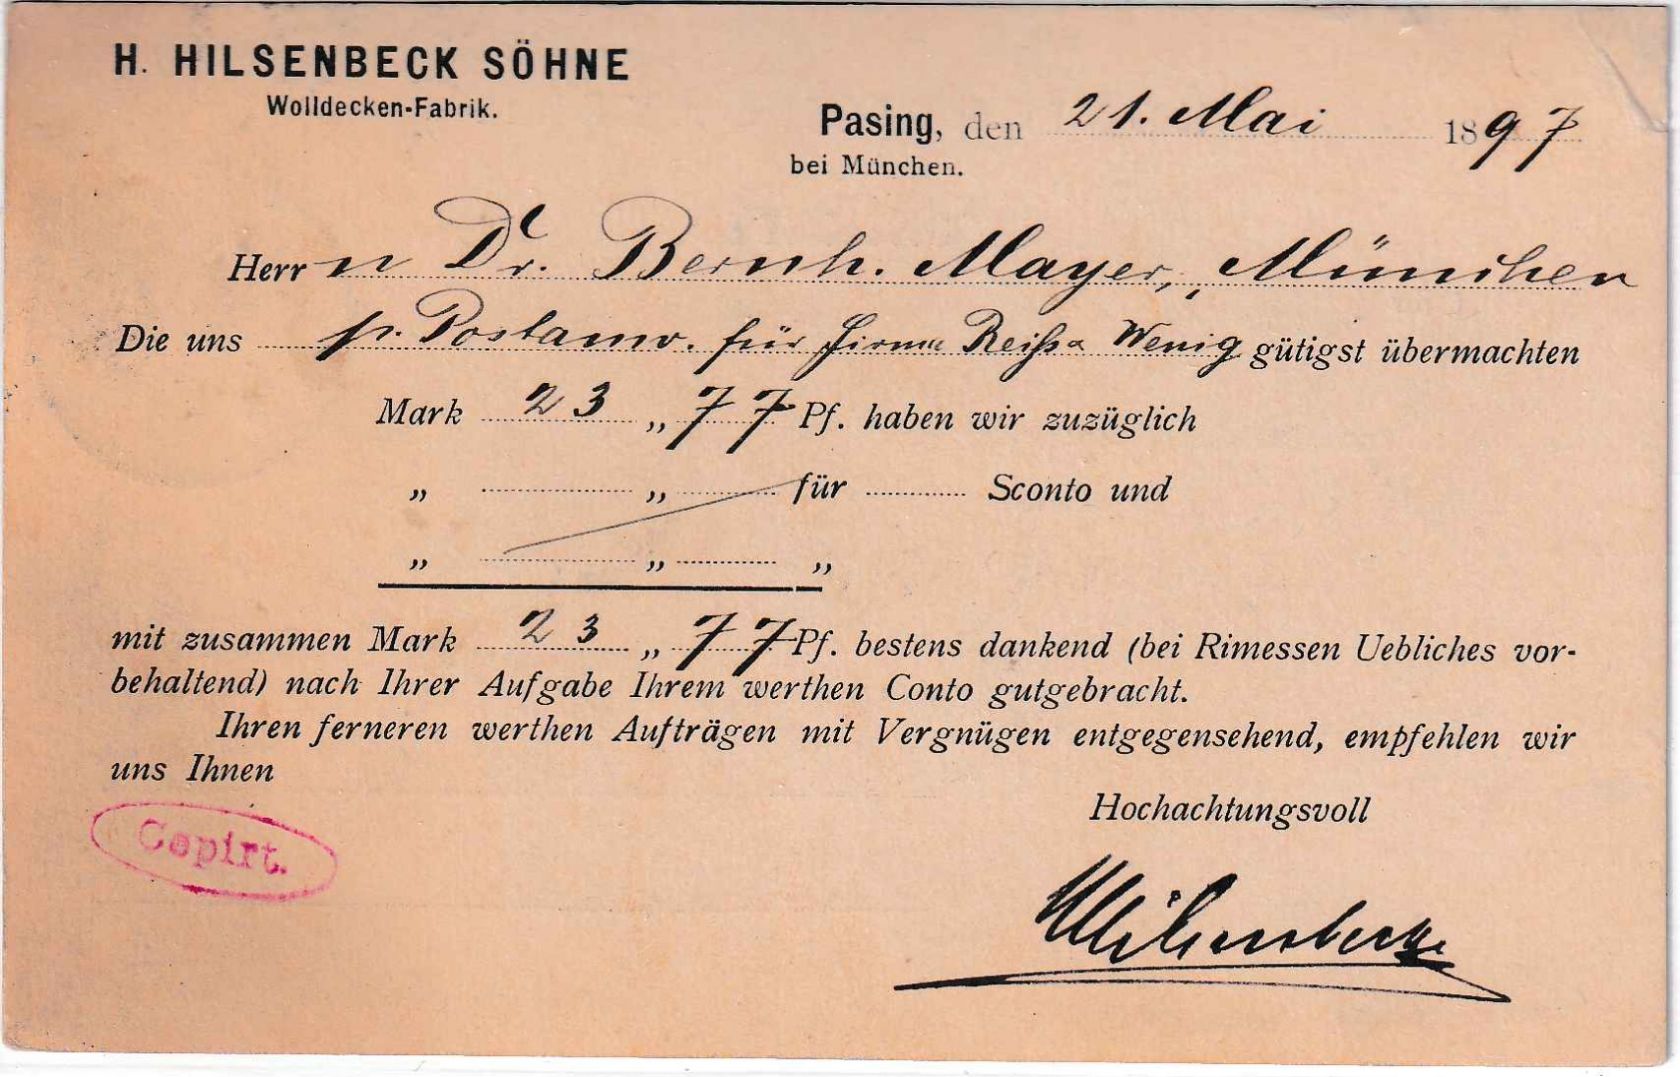 H. HILSENBECK SÖHNE
Wolldecken-Fabrik.
Pasing, den 21. Mai 1897
bei München.
Herrn Dr. Bernh. Mayer, München
Die uns p. Postanw. für Firma Reiß & Wenig gütigst übermachten
Mark 23 „ 77 Pf. haben wir zuzüglich
„ „ für Sconto und
„ „ „
mit zusammen Mark 23 „ 77 Pf. bestens dankend (bei Rimessen Uebliches vor-
behaltend) nach Ihrer Aufgabe Ihrem werthen Conto gutgebracht.
Ihren ferneren werthen Aufträgen mit Vergnügen entgegensehend, empfehlen wir
uns Ihnen
Hochachtungsvoll
Copirt.